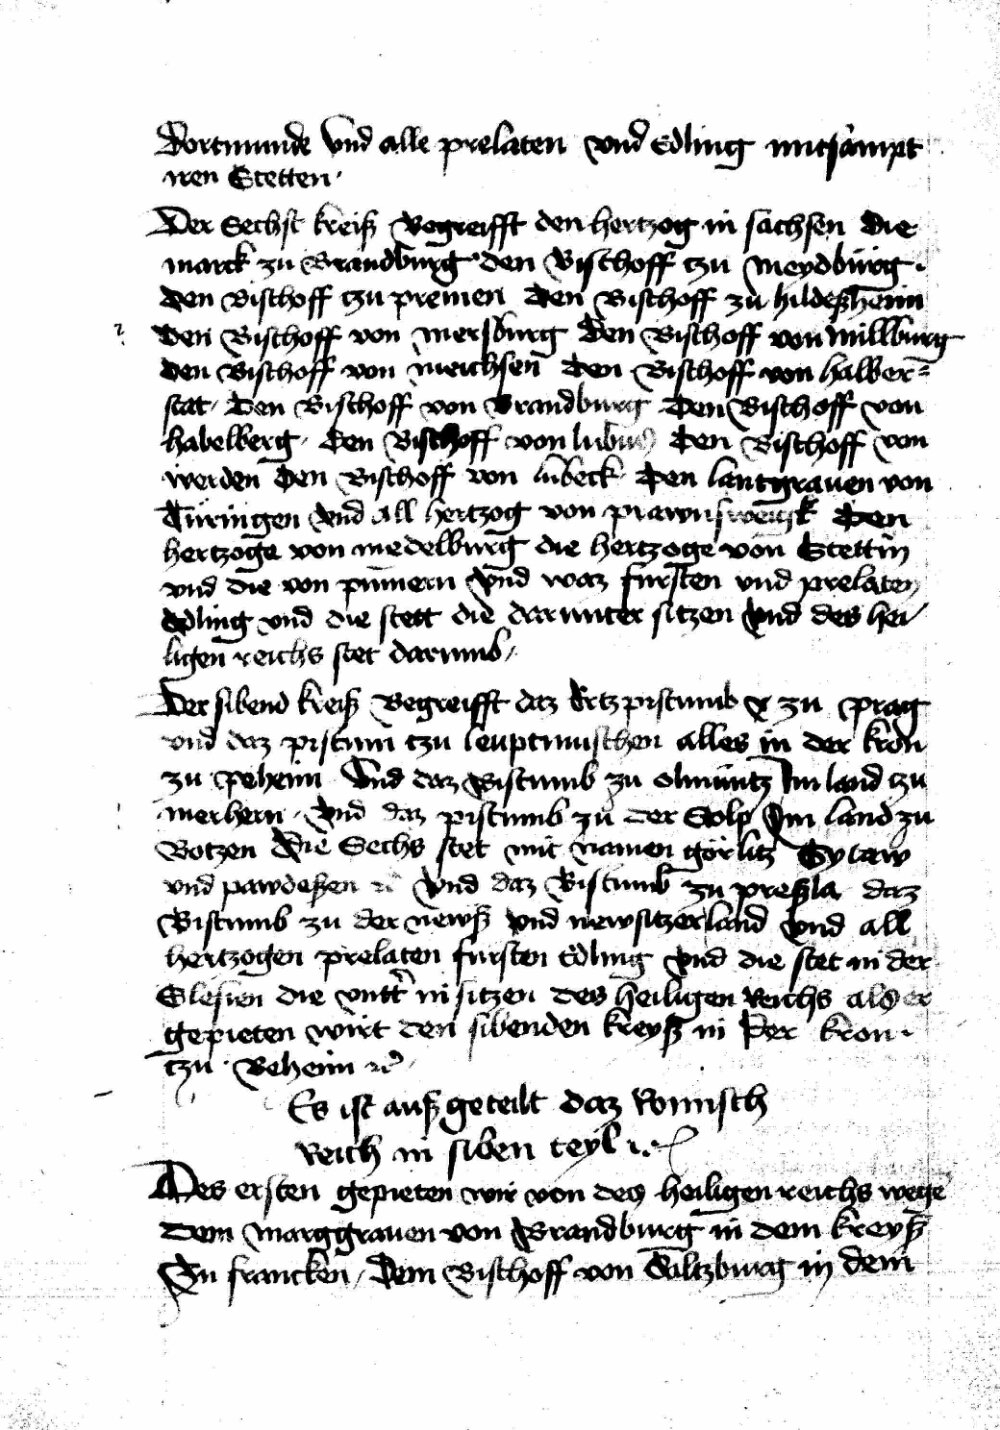 Dortmunde Vnd alle prelaten vnd Edling mitsampt
iren Stetten.
Der Sechst kreiß Begreifft den hertzog in sachsen die
marck zu Brandburg den Bischoff tzu meydburg.
den Bischoff tzu premen den Bischoff zu hildeßheim
den Bischoff von mersburg den Bischoff von Millburg
den Bischoff von meichsen den Bischoff von halber=
stat. den Bischoff von Brandburg den Bischoff von
habelberg. den Bischoff von lubus den Bischoff von
werden den Bischoff von lubeck den lantgrauen von
Türingen vnd all hertzog von prawnsweigk den
hertzoge von medelburg die hertzoge von Stettin
vnd die von pümern vnd waz fursten vnd prelaten
edling vnd die stett die darunter sitzen vnd des hei-
ligen reichs stet darumb.
Der sibend kreiß Begreifft daz Ertzpistumb zu prag
vnd daz pistum tzu leuptmuschen alles in der kron
zu peheim Vnd daz Bistumb zu olmüntz Im land tzu
merhern. vnd daz pistumb zu der Stolp Im land zu
Botzen die Sechs stet mit namen görlitz Sytaw
vnd pawdeßen ꝛc vnd daz Bistumb zu preßla daz
Bistumb zu der newß vnd newsitzerland vnd all
hertzogen prelaten fursten Edling vnd die stet in der
Slesien die vntter in sitzen des heiligen Reichs als er
gepieten wirt den sibenden kreyß in der kron.
tzu Beheim ꝛc
Es ist auß geteilt daz Romisch
Reich in siben teyl
Des ersten gepieten wir von des heiligen reichs wege
dem marggrauen von Brandburg in dem kreyß
Zu francken. Dem Bischoff von Saltzburg in dem